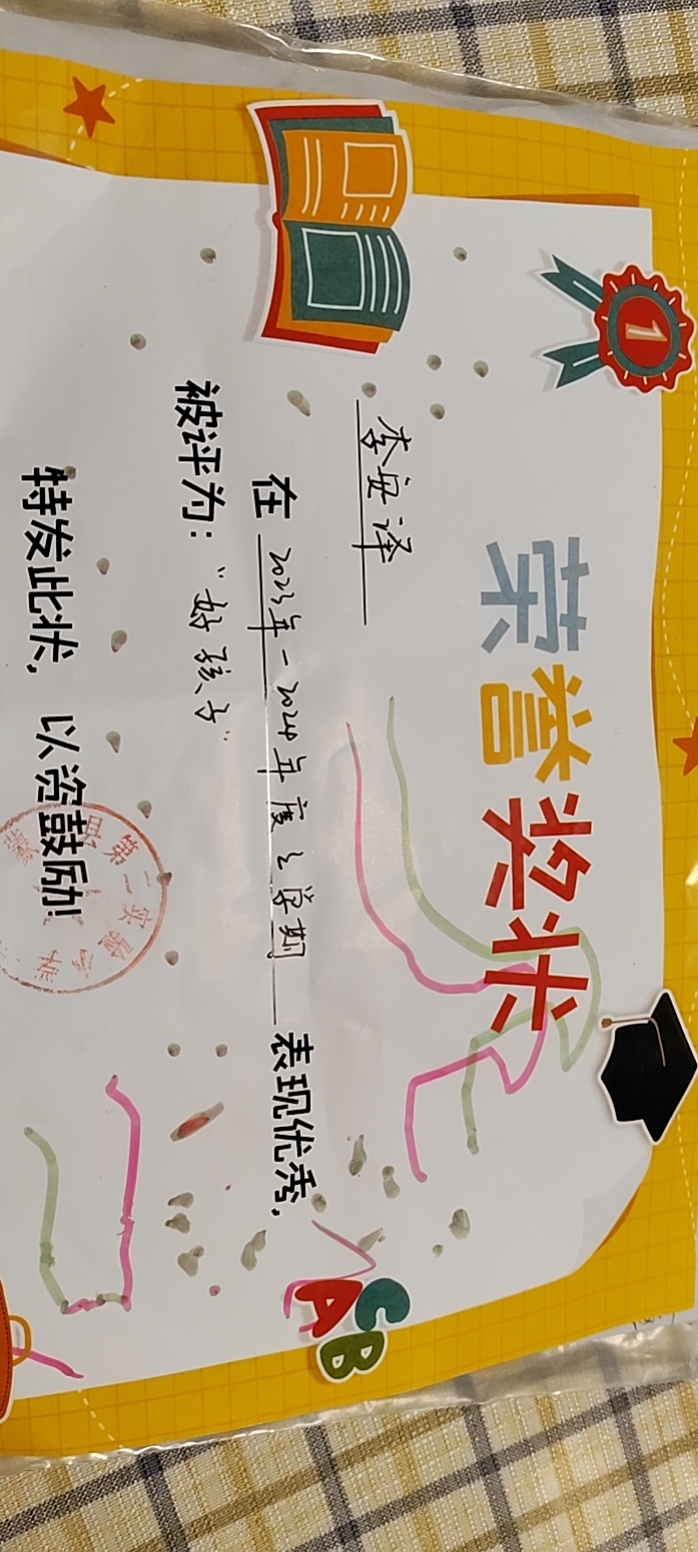 荣誉奖状
李安泽
在 2023年-2024年度上学期 表现优秀，
被评为：“好孩子”
特发此状，以资鼓励!
县第二实验
1
ABC